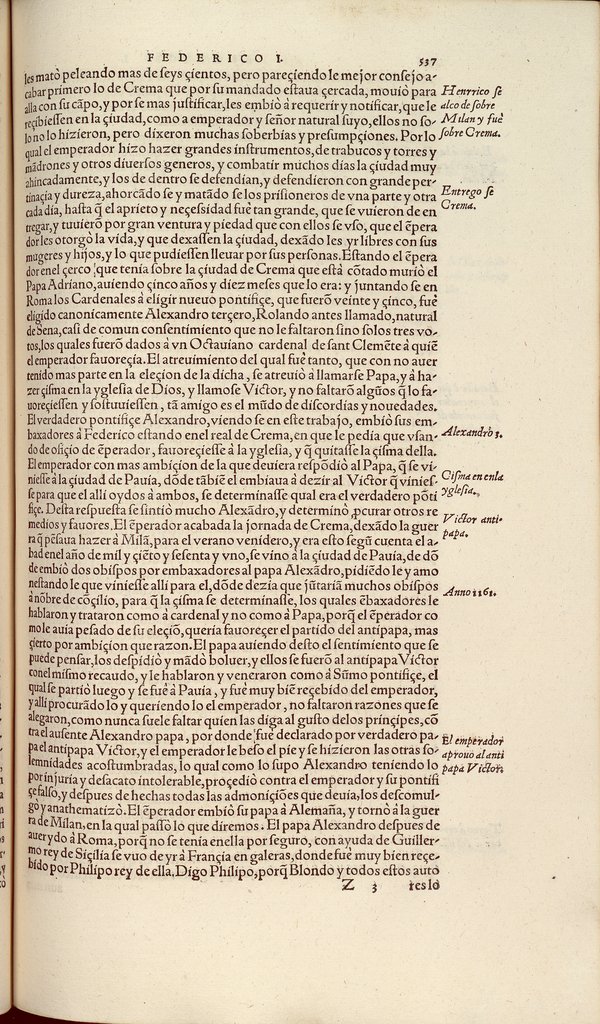 FEDERICO I.
537
les matò peleando mas de seys çientos, pero pareçiendo le mejor consejo a-
cabar primero lo de Crema que por su mandado estaua çercada, mouiò para
alla con su cãpo, y por se mas justificar, les embiò à requerir y notificar, que le
reçibiessen en la çiudad, como a emperador y señor natural suyo, ellos no so-
lo no lo hizieron, pero dixeron muchas soberbias y presumpçiones. Por lo
qual el emperador hizo hazer grandes instrumentos, de trabucos y torres y
madrones y otros diuersos generos, y combatir muchos dias la çiudad muy
ahincadamente, y los de dentro se defendian, y defendieron con grande per-
tinaçia y dureza, ahorcãdo se y matãdo se los prisioneros de vna parte y otra
cada dia, hasta q̃ el aprieto y neçessidad fuè tan grande, que se vuieron de en
tregar, y tuuierõ por gran ventura y piedad que con ellos se vso, que el ẽpera
dor les otorgò la vida, y que dexassen la çiudad, dexãdo les yr libres con sus
mugeres y hijos, y lo que pudiessen lleuar por sus personas. Estando el ẽpera
dor en el çerco que tenia sobre la çiudad de Crema que està cõtado murió el
Papa Adriano, auiendo çinco años y diez meses que lo era: y juntando se en
Roma los Cardenales à eligir nueuo pontifiçe, que fuerõ veinte y çinco, fuè
eligido canonicamente Alexandro terçero, Rolando antes llamado, natural
de Sena, casi de comun consentimiento que no le faltaron sino solos tres vo-
tos, los quales fuerõ dados à vn Octauiano cardenal de sant Clemẽte à quiẽ
el emperador fauoreçia. El atreuimiento del qual fuè tanto, que con no auer
tenido mas parte en la eleçion de la dicha, se atreuiò a llamarse Papa, y à ha-
zer çisma en la yglesia de Dios, y llamose Victor, y no faltarõ algũos q̃ lo fa-
uoreçiessen y sostuuiessen, tã amigo es el mũdo de discordias y nouedades.
El verdadero pontifiçe Alexandro, viendo se en este trabajo, embiò sus em-
baxadores à Federico estando en el real de Crema, en que le pedia que vsan-
do de ofiçio de ẽperador, fauoreçiesse à la yglesia, y q̃ quitasse la çisma della.
El emperador con mas ambiçion de la que deuiera respõdiò al Papa, q̃ se vi-
niesse à la çiudad de Pauia, dõde tãbiẽ el embiaua à dezir al Victor q̃ vinies-
se para que el alli oydos à ambos, se determinasse qual era el verdadero põti
fiçe. Desta respuesta se sintiò mucho Alexãdro, y determinò ꝓcurar otros re
medios y fauores. El ẽperador acabada la jornada de Crema, dexãdo la guer
ra q̃ pẽsaua hazer à Milã, para el verano venidero, y era esto segũ cuenta el a-
bad en el año de mil y çiẽto y sesenta y vno, se vino a la çiudad de Pauia, de dõ
de embiò dos obispos por embaxadores al papa Alexãdro, pidiẽdo le y amo
nestando le que viniesse alli para el, dõde dezia que jũtaria muchos obispos
à nõbre de cõçilio, para q̃ la çisma se determinasse, los quales ẽbaxadores le
hablaron y trataron como à cardenal y no como à Papa, porq̃ el ẽperador co
mo le auia pesado de su eleçiõ, queria fauoreçer el partido del antipapa, mas
çierto por ambiçion que razon. El papa auiendo desto el sentimiento que se
puede pensar, los despidiò y mãdò boluer, y ellos se fuerõ al antipapa Victor
con el mismo recaudo, y le hablaron y veneraron como à Sũmo pontifiçe, el
qual se partiò luego y se fuè à Pauia, y fuè muy biẽ reçebido del emperador,
y alli procurãdo lo y queriendo lo el emperador, no faltaron razones que se
alegaron, como nunca suele faltar quien las diga al gusto delos prinçipes, cõ
tra el ausente Alexandro papa, por donde fuè declarado por verdadero pa-
pa el antipapa Victor, y el emperador le beso el pie y se hizieron las otras so-
lemnidades acostumbradas, lo qual como lo supo Alexandro teniendo lo
por injuria y desacato intolerable, proçediò contra el emperador y su pontifi
çe falso, y despues de hechas todas las admoniçiões que deuia, los descomul-
gò y anathematizò. El ẽperador embiò su papa à Alemaña, y tornò à la guer
ra de Milan, en la qual passò lo que diremos. El papa Alexandro despues de
auer ydo à Roma, porq̃ no se tenia en ella por seguro, con ayuda de Guiller-
mo rey de Siçilia se vuo de yr à Françia en galeras, donde fuè muy bien reçe-
bido por Philipo rey de ella, Digo Philipo, porq̃ Blondo y todos estos auto
Z 3
res lo
Henrrico se
alco de sobre
Milan y fuè
sobre Crema.
Entrego se
Crema.
Alexandro 3.
Cisma en enla
yglesia.
Victor anti-
papa.
Anno 1161.
El emperador
aprouo al anti
papa Victor.